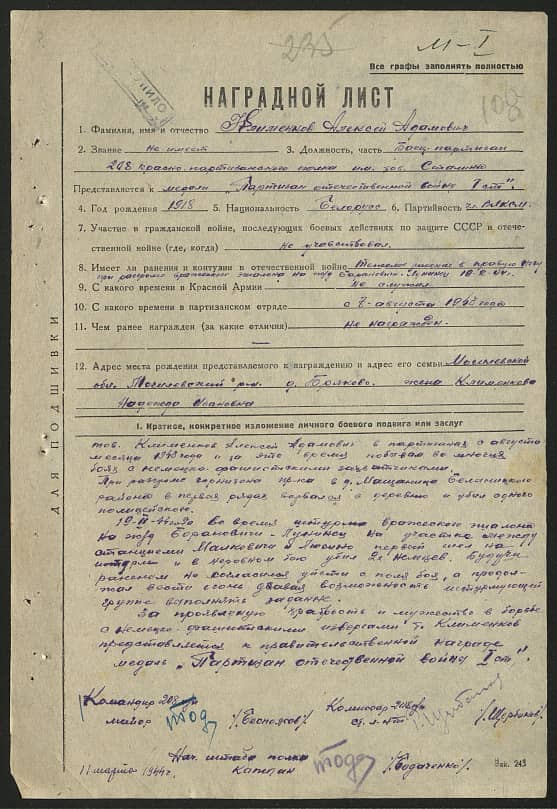 235
М-I
Все графы заполнять полностью
108
НАГРАДНОЙ ЛИСТ
1. Фамилия, имя и отчество Клименков Алексей Адамович
2. Звание Не имеет 3. Должность, часть Боец-партизан
208 краснопартизанского полка им. тов. Сталина
Представляется к медали "Партизан отечественной войны I ст".
4. Год рождения 1918 5. Национальность Белорус 6. Партийность чл. ВЛКСМ.
7. Участие в гражданской войне, последующих боевых действиях по защите СССР и отече-
ственной войне (где, когда) Не участвовал.
8. Имеет ли ранения и контузии в отечественной войне Тяжело ранен в правую ногу
при разгроме вражеского эшелона на ж/д Барановичи-Лунинец
9. С какого времени в Красной Армии Не служил
10. С какого времени в партизанском отряде с 7-августа
11. Чем ранее награжден (за какие отличия) Не награждён.
12. Адрес места рождения представляемого к награждению и адрес его семьи Могилевской
обл. Могилевский р-н. д. жена Клименкова
Надежда Ивановна
ДЛЯ ПОДШИВКИ
I. Краткое, конкретное изложение личного боевого подвига или заслуг
тов. Клименков Алексей Адамович в партизанах с августа
месяца и за это время побывал во многих
боях с немецко-фашистскими захватчиками.
При разгроме гарнизона в д. Мащаница Белыничского
района в первых рядах ворвался в деревню и убил одного
полицейского.
во время штурма вражеского эшелона
на ж/д Барановичи-Лунинец на участке между
станциями Мальковичи и Люсино первый шел на
штурм и в неровном бою убил 2х немцев. Будучи
раненом не согласился уйти с поля боя, а продол-
жал вести огонь давая возможность штурмующей
группе выполнить задание.
За проявленную храбрость и мужество в борьбе
с немецко-фашистскими извергами т. Клименков
представляется к правительственной награде
медаль "Партизан отечественной войны I ст".
Командир 208
майор /Беспоясов/
Комиссар 208
ст. л-нт. /Щербаков/
Нач. штаба полка
11 марта 1944 г. Капитан /Бодаченко/.
Зак. 243